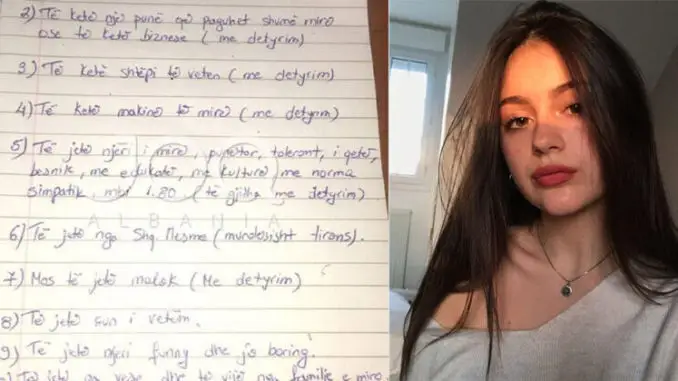 2) Të ketë një punë që paguhet shumë mirë
ose të ketë biznese (me detyrim)
3) Të ketë shtëpi të veten (me detyrim)
4) Të ketë makinë të mirë (me detyrim)
5) Të jetë njëri i mirë, punëtor, tolerant, i qetë,
besnik, me edukatë, me kulturë me norma
simpatik, mbi 1.80 (të gjitha me detyrim)
ALBANIA
6) Të jetë nga Shq. Mesme (mundësisht tirons).
7) Mos të jetë malok (Me detyrim)
8) Të jetë sun i vetëm.
9) Të jetë njeri funny dhe jo boring.
Të jetë dhe të vijë nga familje e mirë